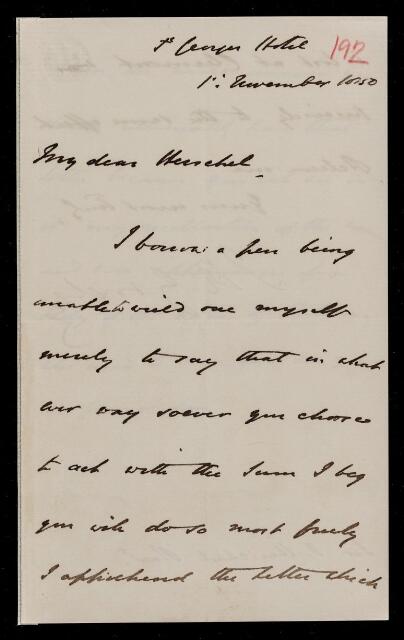 St Georges Hotel
192
1st November 1850
My dear Herschel
I borrow a pen being
unable to wield one myself
merely to say that in what
ever way soever you choose
to act with the Sum I beg
you will do so most freely
I apprehend the letter which